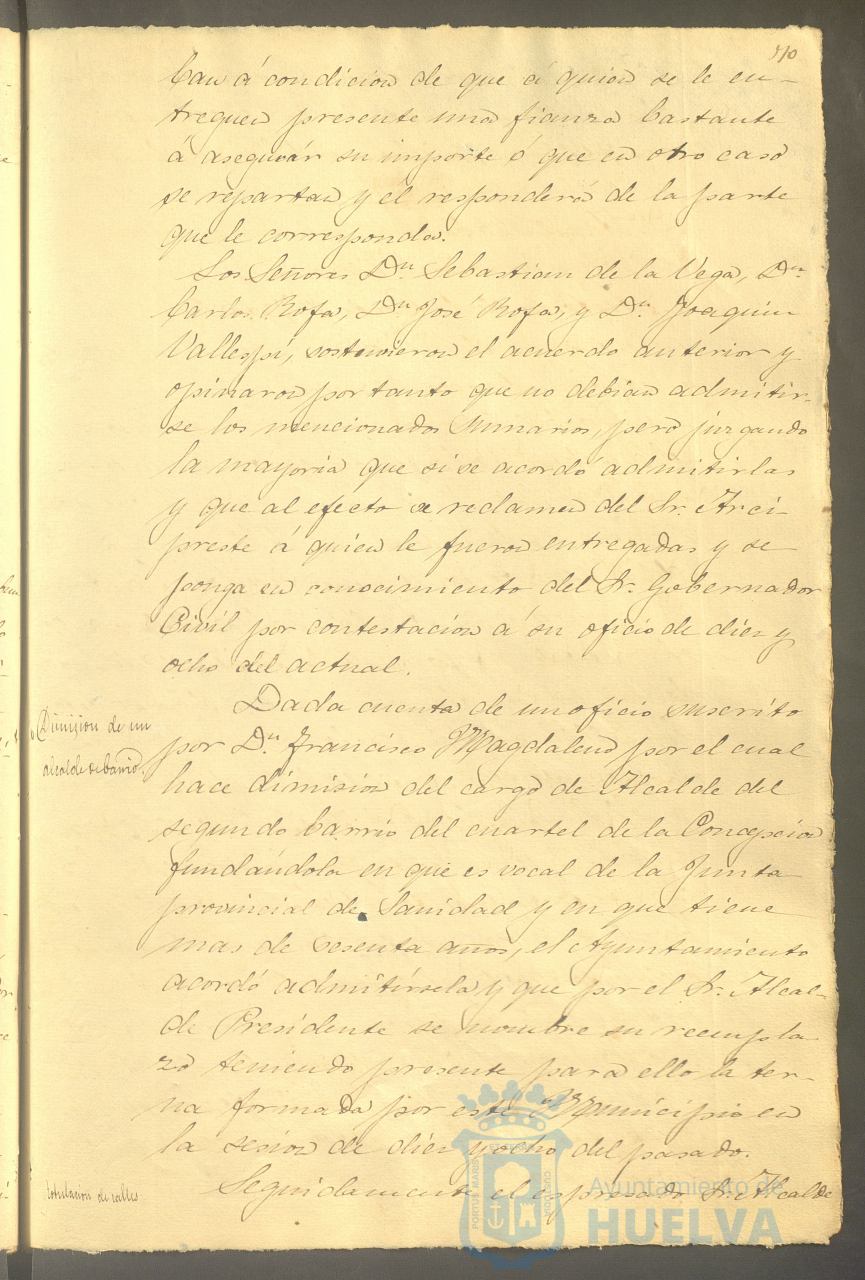 ban á condicion de que á quien se le en-
treguen presente una fianza bastante
á asegurar su importe ó que en otro caso
se repartan y él responderá de la parte
que le corresponda.
Los Señores Dn. Sebastian de la Vega, Dn.
Carlos Rofa, Dn José Rofa, y Dn. Joaquin
Vallespi, sostuvieron el acuerdo anterior y
opinaron por tanto que no debian admitir-
se los mencionados Sumarios, pero juzgando
la mayoria que si se acordó admitirlas
y que al efecto se reclamen del Sr. Arci-
preste á quien le fueron entregadas y se
ponga en conocimiento del Sr. Gobernador
Civil por contestacion á su oficio de diez y
ocho del actual.
Dimision de un
alcalde de barrio.
Dada cuenta de un oficio suscrito
por Dn. Francisco Magdaleno por el cual
hace dimision del cargo de Alcalde del
segundo barrio del cuartel de la Concepcion
fundándola en que es vocal de la Junta
provincial de Sanidad y en que tiene
mas de sesenta años, el Ayuntamiento
acordó admitírsela y que por el Sr. Alcal-
de Presidente se nombre su reempla
zo teniendo presente para ello la ter-
na formada por este Municipio en
la sesion de diez y ocho del pasado.
rotulacion de calles
Seguidamente el espresado Sr. Alcalde
Ayuntamiento de
HUELVA